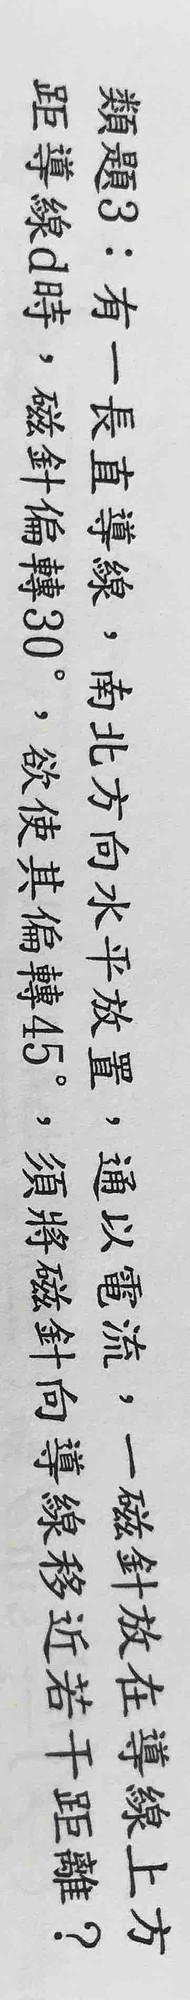 類題3：有一長直導線，南北方向水平放置，通以電流，一磁針放在導線上方
距導線d時，磁針偏轉30°，欲使其偏轉45°，須將磁針向導線移近若干距離？